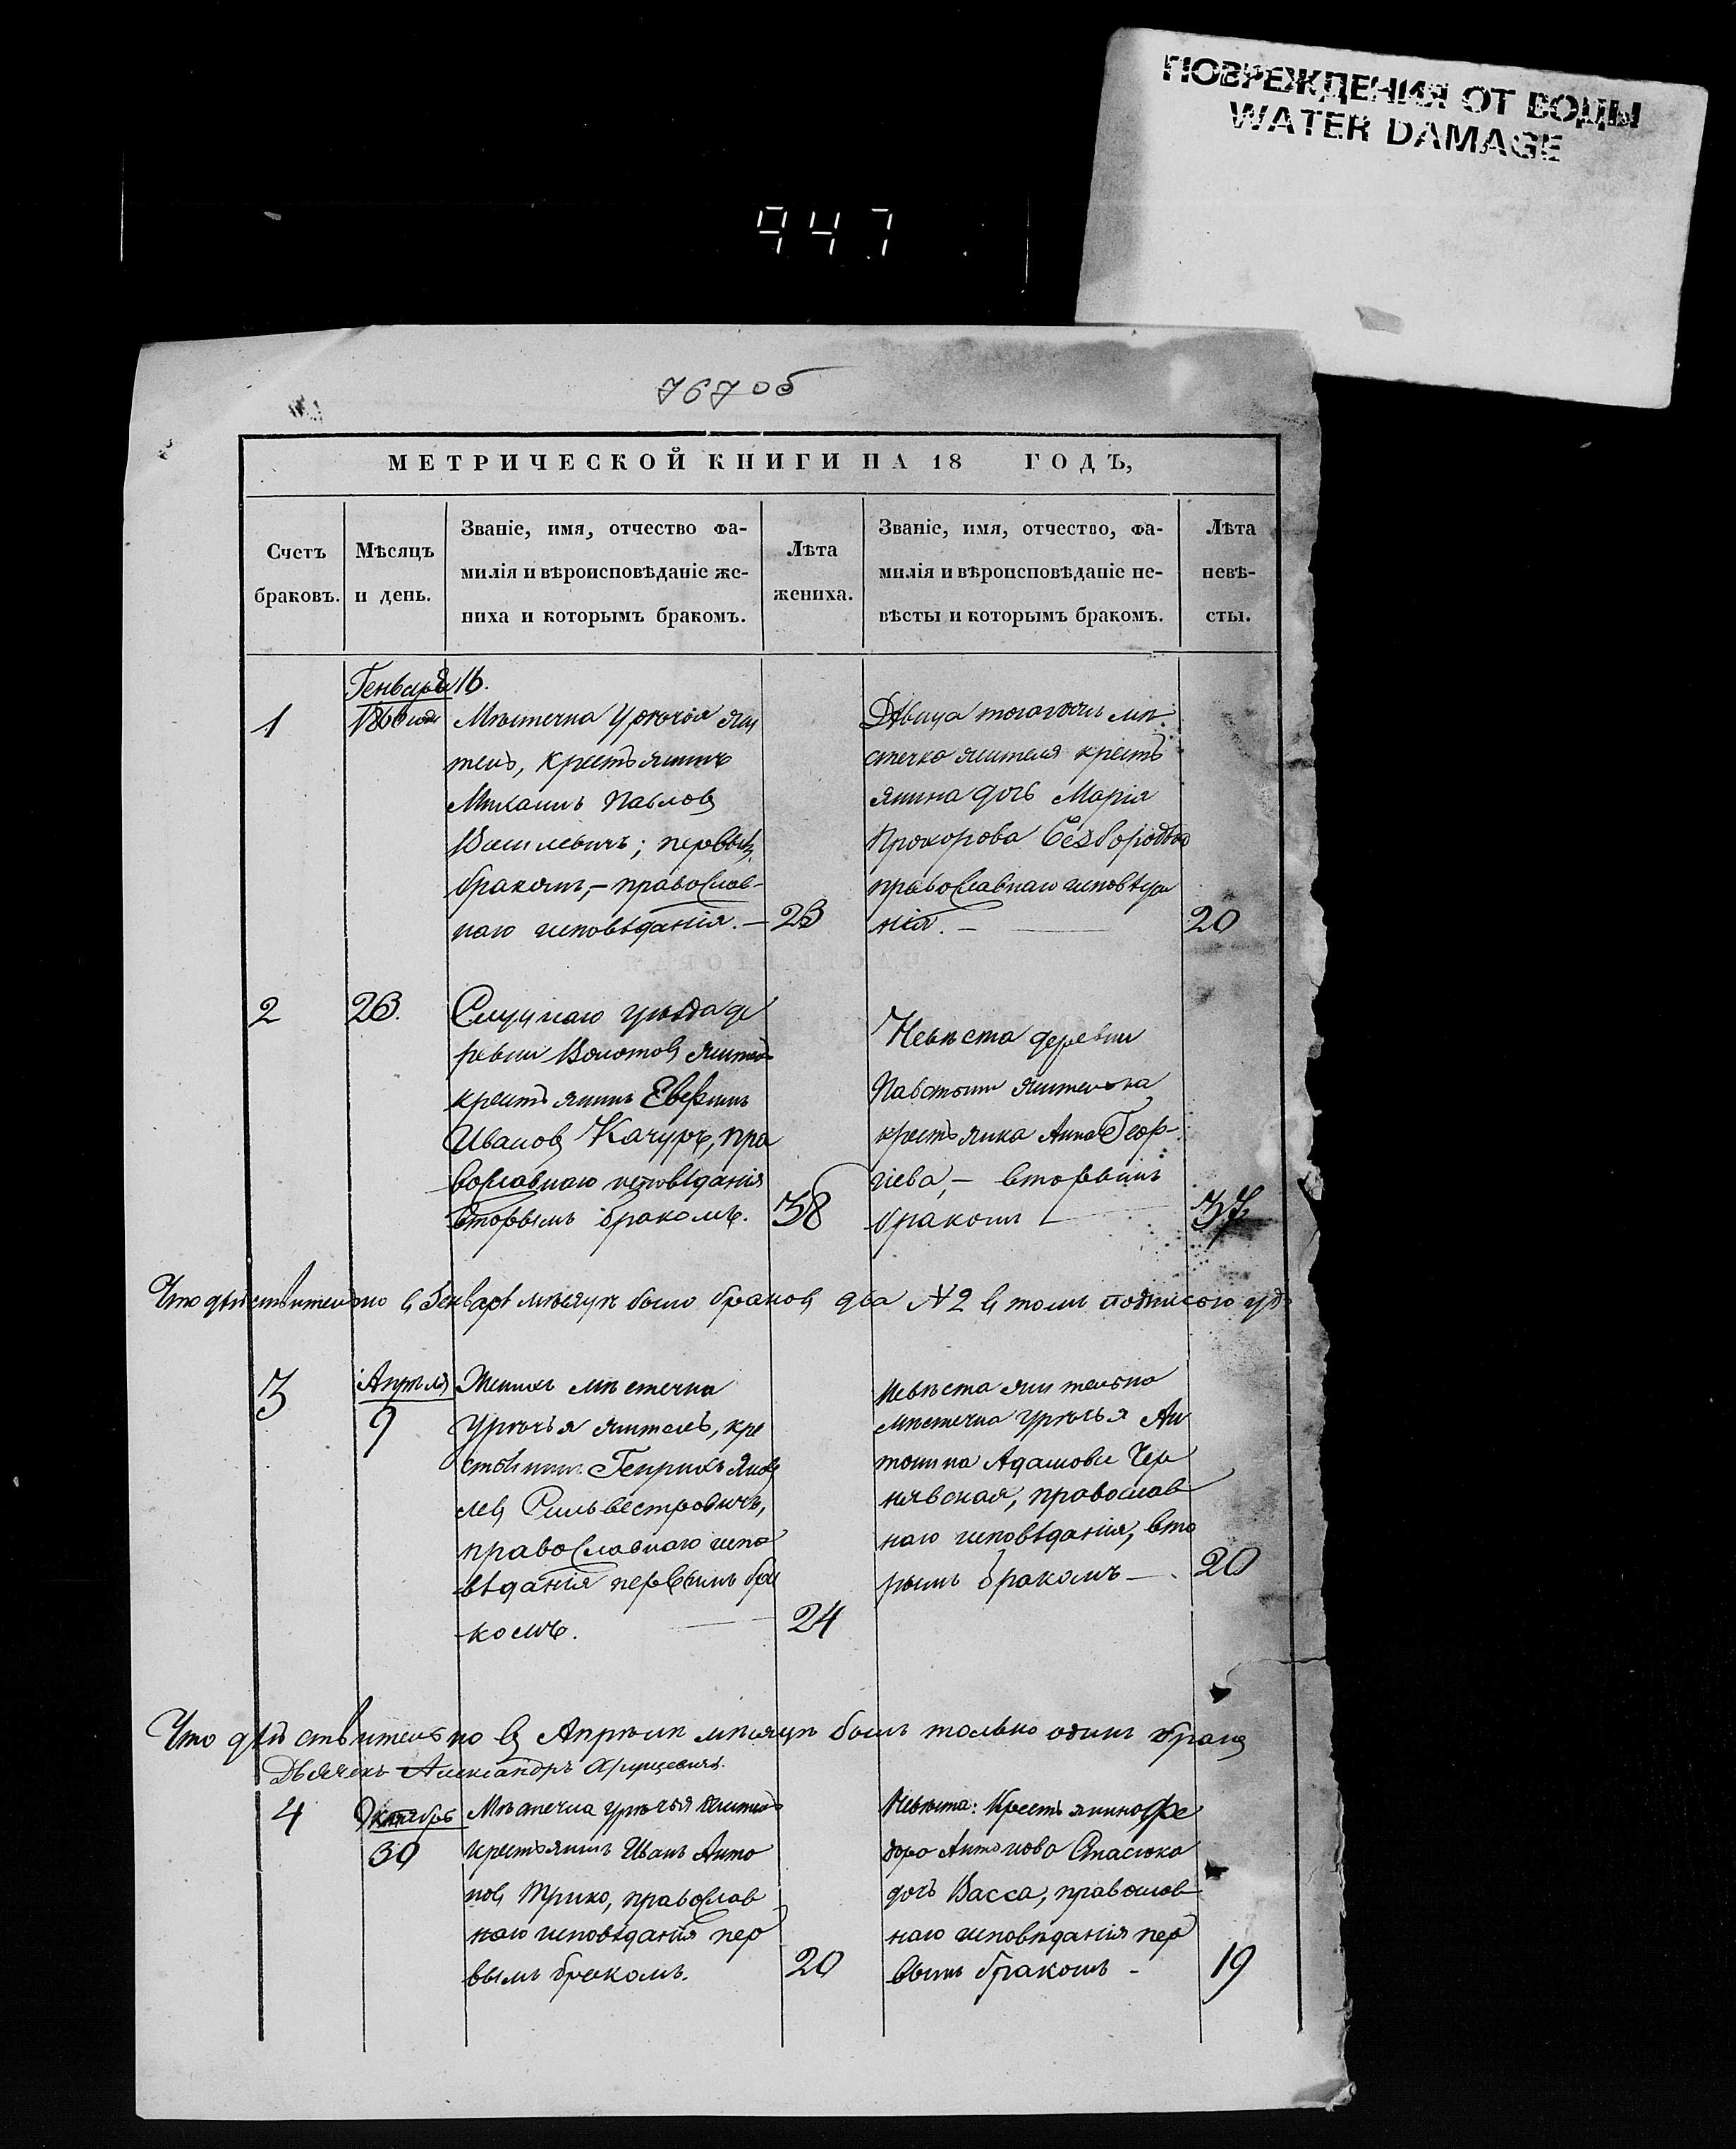 ПОВРЕЖДЕНИЯ ОТ ВОДЫ
WATER DAMAGE
947
767 об
МЕТРИЧЕСКОЙ КНИГИ НА 18 ГОДЪ,
Счетъ
браковъ.
Мѣсяцъ
и день.
Званіе, имя, отчество фа-
милія и вѣроисповѣданіе же-
ниха и которымъ бракомъ.
Лѣта
жениха.
Званіе, имя, отчество, фа-
милія и вѣроисповѣданіе не-
вѣсты и которымъ бракомъ.
Лѣта
невѣ-
сты.
1
Генваря 16.
Мѣстечка Уречія жи
тель, крестьянинъ
Михаилъ Павловъ
Василевичъ; первымъ
бракомъ,- православ-
наго исповѣданія. -
23
Дѣвица тогоже мѣ
стечка жителя кресть
янина дочь Марія
Прохорова
православнаго исповѣда
нія. -
20
2
23.
Слуцкаго уѣзда де
ревни житель
крестьянинъ
Ивановъ Качуръ, пра
вославнаго исповѣданія
вторымъ бракомъ.
38
Невѣста деревни
жителька
крестьянка Анна Геор
гіева, - вторымъ
бракомъ
37
Что дѣйствительно въ Генварѣ мѣсяцѣ было браковъ два № 2 въ томъ
3
Апрѣля
9
Женихъ мѣстечка
Уречья житель, кре
стьянинъ Генрихъ Яков
левъ Сильвестровичъ,
православнаго испо
вѣданія первымъ бра
комъ.
24
Невѣста жителька
мѣстечка Уречья Ан
тонина Адамова Чер
нявская, православ
наго исповѣданія, вто
рымъ бракомъ -.
20
Что дѣйствительно въ Апрѣлѣ мѣсяцѣ былъ только одинъ бракъ
Дьячекъ Александръ
4
Октябрь
30
Мѣстечка Уречья житель
крестьянинъ Иванъ Анто
новъ Трико, православ
наго исповѣданія пер
вымъ бракомъ.
20
Невѣста: Крестьянина Фе
дора Антонова Стасюка
дочь Васса, православ
наго исповѣданія пер
вымъ бракомъ -
19